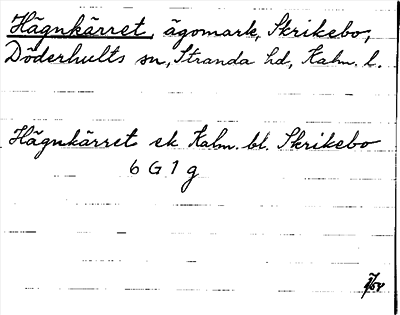 Hägnkärret, ägomark, Skrikebo,
Döderhults sn, Stranda hd, Kalm. l.
Hägnkärret ek. Kalm. bl. Skrikebo
6 G 1 g